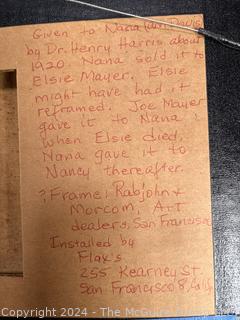 Given to Nana (am Davis
by Dr. Henry Harris about
1920. Nana sold it to
Elsie Mayer. Elsie
might have had it
reframed. Joe Mayer
gave it to Nana
when Elsie died.
Nana gave it to
Nancy thereafter.
? Frame: Rabjohn &
Morcom, Art
dealers, San Francisco
Installed by
Flax's
255 Kearney St.
San Francisco 8, Calif
Copyright ©2024 - The McGuire Auction Group